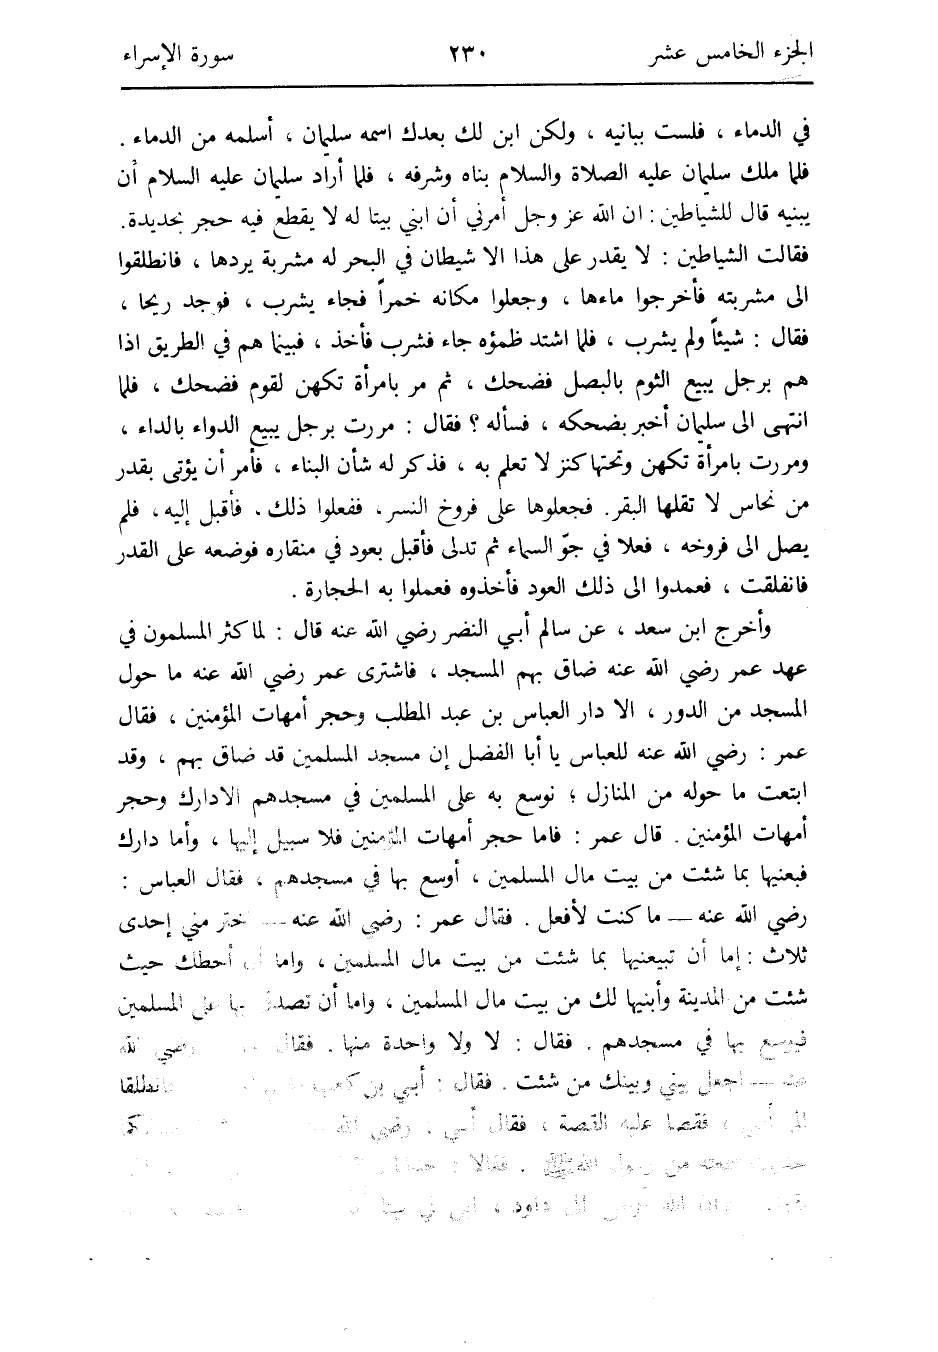 الجزء الخامس عشر ٢٣٠ سورة الإسراء
في الدماء ، فلست ببانيه ، ولكن ابن لك بعدك اسمه سليمان ، أسلمه من الدماء .
فلما ملك سليمان عليه الصلاة والسلام بناه وشرفه ، فلما أراد سليمان عليه السلام أن
يبنيه قال للشياطين : ان الله عز وجل أمرني أن ابني بيتا له لا يقطع فيه حجر بحديدة.
فقالت الشياطين : لا يقدر على هذا الا شيطان في البحر له مشربة يردها ، فانطلقوا
الى مشربته فأخرجوا ماءها ، وجعلوا مكانه خمراً فجاء يشرب ، فوجد ريحا ،
فقال : شيئاً ولم يشرب ، فلما اشتد ظمؤه جاء فشرب فأخذ ، فبينما هم في الطريق اذا
هم برجل يبيع الثوم بالبصل فضحك ، ثم مر بامرأة تكهن لقوم فضحك ، فلما
انتهى الى سليمان أخبر بضحكه ، فسأله ؟ فقال : مررت برجل يبيع الدواء بالداء ،
ومررت بامرأة تكهن وتحتها كنز لا تعلم به ، فذكر له شأن البناء ، فأمر أن يؤتى بقدر
من نحاس لا تقلها البقر. فجعلوها على فروخ النسر، ففعلوا ذلك. فأقبل إليه، فلم
يصل الى فروخه ، فعلا في جوّ السماء ثم تدلى فأقبل بعود في منقاره فوضعه على القدر
فانفلقت ، فعمدوا الى ذلك العود فأخذوه فعملوا به الحجارة .
وأخرج ابن سعد ، عن سالم أبي النضر رضي الله عنه قال : لما كثر المسلمون في
عهد عمر رضي الله عنه ضاق بهم المسجد ، فاشترى عمر رضي الله عنه ما حول
المسجد من الدور ، الا دار العباس بن عبد المطلب وحجر أمهات المؤمنين ، فقال
عمر : رضي الله عنه للعباس يا أبا الفضل إن مسجد المسلمين قد ضاق بهم ، وقد
ابتعت ما حوله من المنازل ؛ نوسع به على المسلمين في مسجدهم الادارك وحجر
أمهات المؤمنين. قال عمر : فاما حجر أمهات المؤمنين فلا سبيل إليها ، وأما دارك
فبعنيها بما شئت من بيت مال المسلمين ، أوسع بها في مسجدهم ، فقال العباس :
رضي الله عنه — ما كنت لأفعل . فقال عمر : رضي الله عنه — اختر مني إحدى
ثلاث : إما أن تبيعنيها بما شئت من بيت مال المسلمين ، واما أن أحطك حيث
شئت من المدينة وأبنيها لك من بيت مال المسلمين ، واما أن تصدق بها على المسلمين
فيوسع بها في مسجدهم . فقال : لا ولا واحدة منها . فقال رضي الله
عنه — اجعل بيني وبينك من شئت . فقال : أبي بن كعب فانطلقا
الى أبي ، فقصا عليه القصة ، فقال أبي : رضي الله
من رسول الله ﷺ . فقالا :
الله الى داود ، ابن لي بيتا